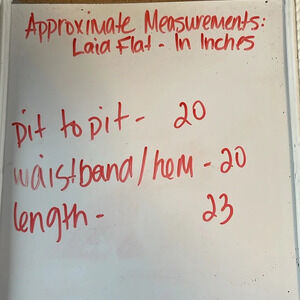 Approximate Measurements:
Laid Flat - In Inches
pit to pit - 20
waistband/hem - 20
length - 23